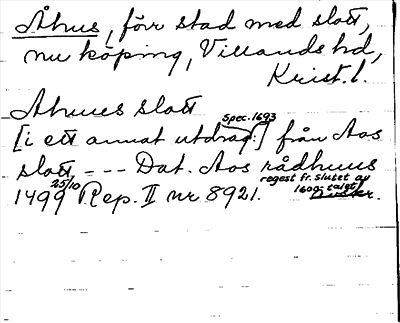 Åhus, förr stad med slott,
nu köping, Villands hd,
Krist. l.
Ahues slott
Spec. 1693
[i ett annat utdrag:] från Aos
slott, --- Dat. Aos rådhuus
regest fr. slutet av
1499 25/10 Rep. II nr 8921. 1600-talet